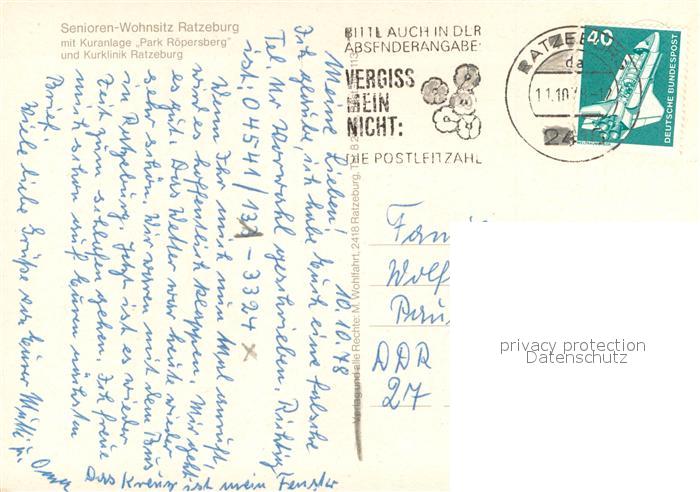 Senioren-Wohnsitz Ratzeburg
mit Kuranlage „Park Röpersberg"
und Kurklinik Ratzeburg
BITTE AUCH IN DER
ABSENDERANGABE:
VERGISS
MEIN
NICHT:
DIE POSTLEITZAHL
40
DEUTSCHE BUNDESPOST
10.10.78
Meine Lieben!
Ich glaube, ich habe Euch eine falsche
Tel. Nr. Vorwahl geschrieben. Richtig
ist: 04541/13 - 3324 x
Wenn Ihr mich nun Mal anruft,
wird es hoffentlich klappen. Mir geht
es gut. Das Wetter war heute wieder
sehr schön. Wir waren mit dem Bus
in Ratzeburg. Jetzt ist es wieder
Zeit zum schlafen gehen. Ich freue
mich schon auf Euren nächsten
Brief.
Viele liebe Grüße von Eurer Mutti u. Oma
Das Kreuz ist mein Fenster
Verlag und alle Rechte: M. Wohlfahrt, 2418 Ratzeburg, T
Fami
Wolf
DDR
27
privacy protection
Datenschutz